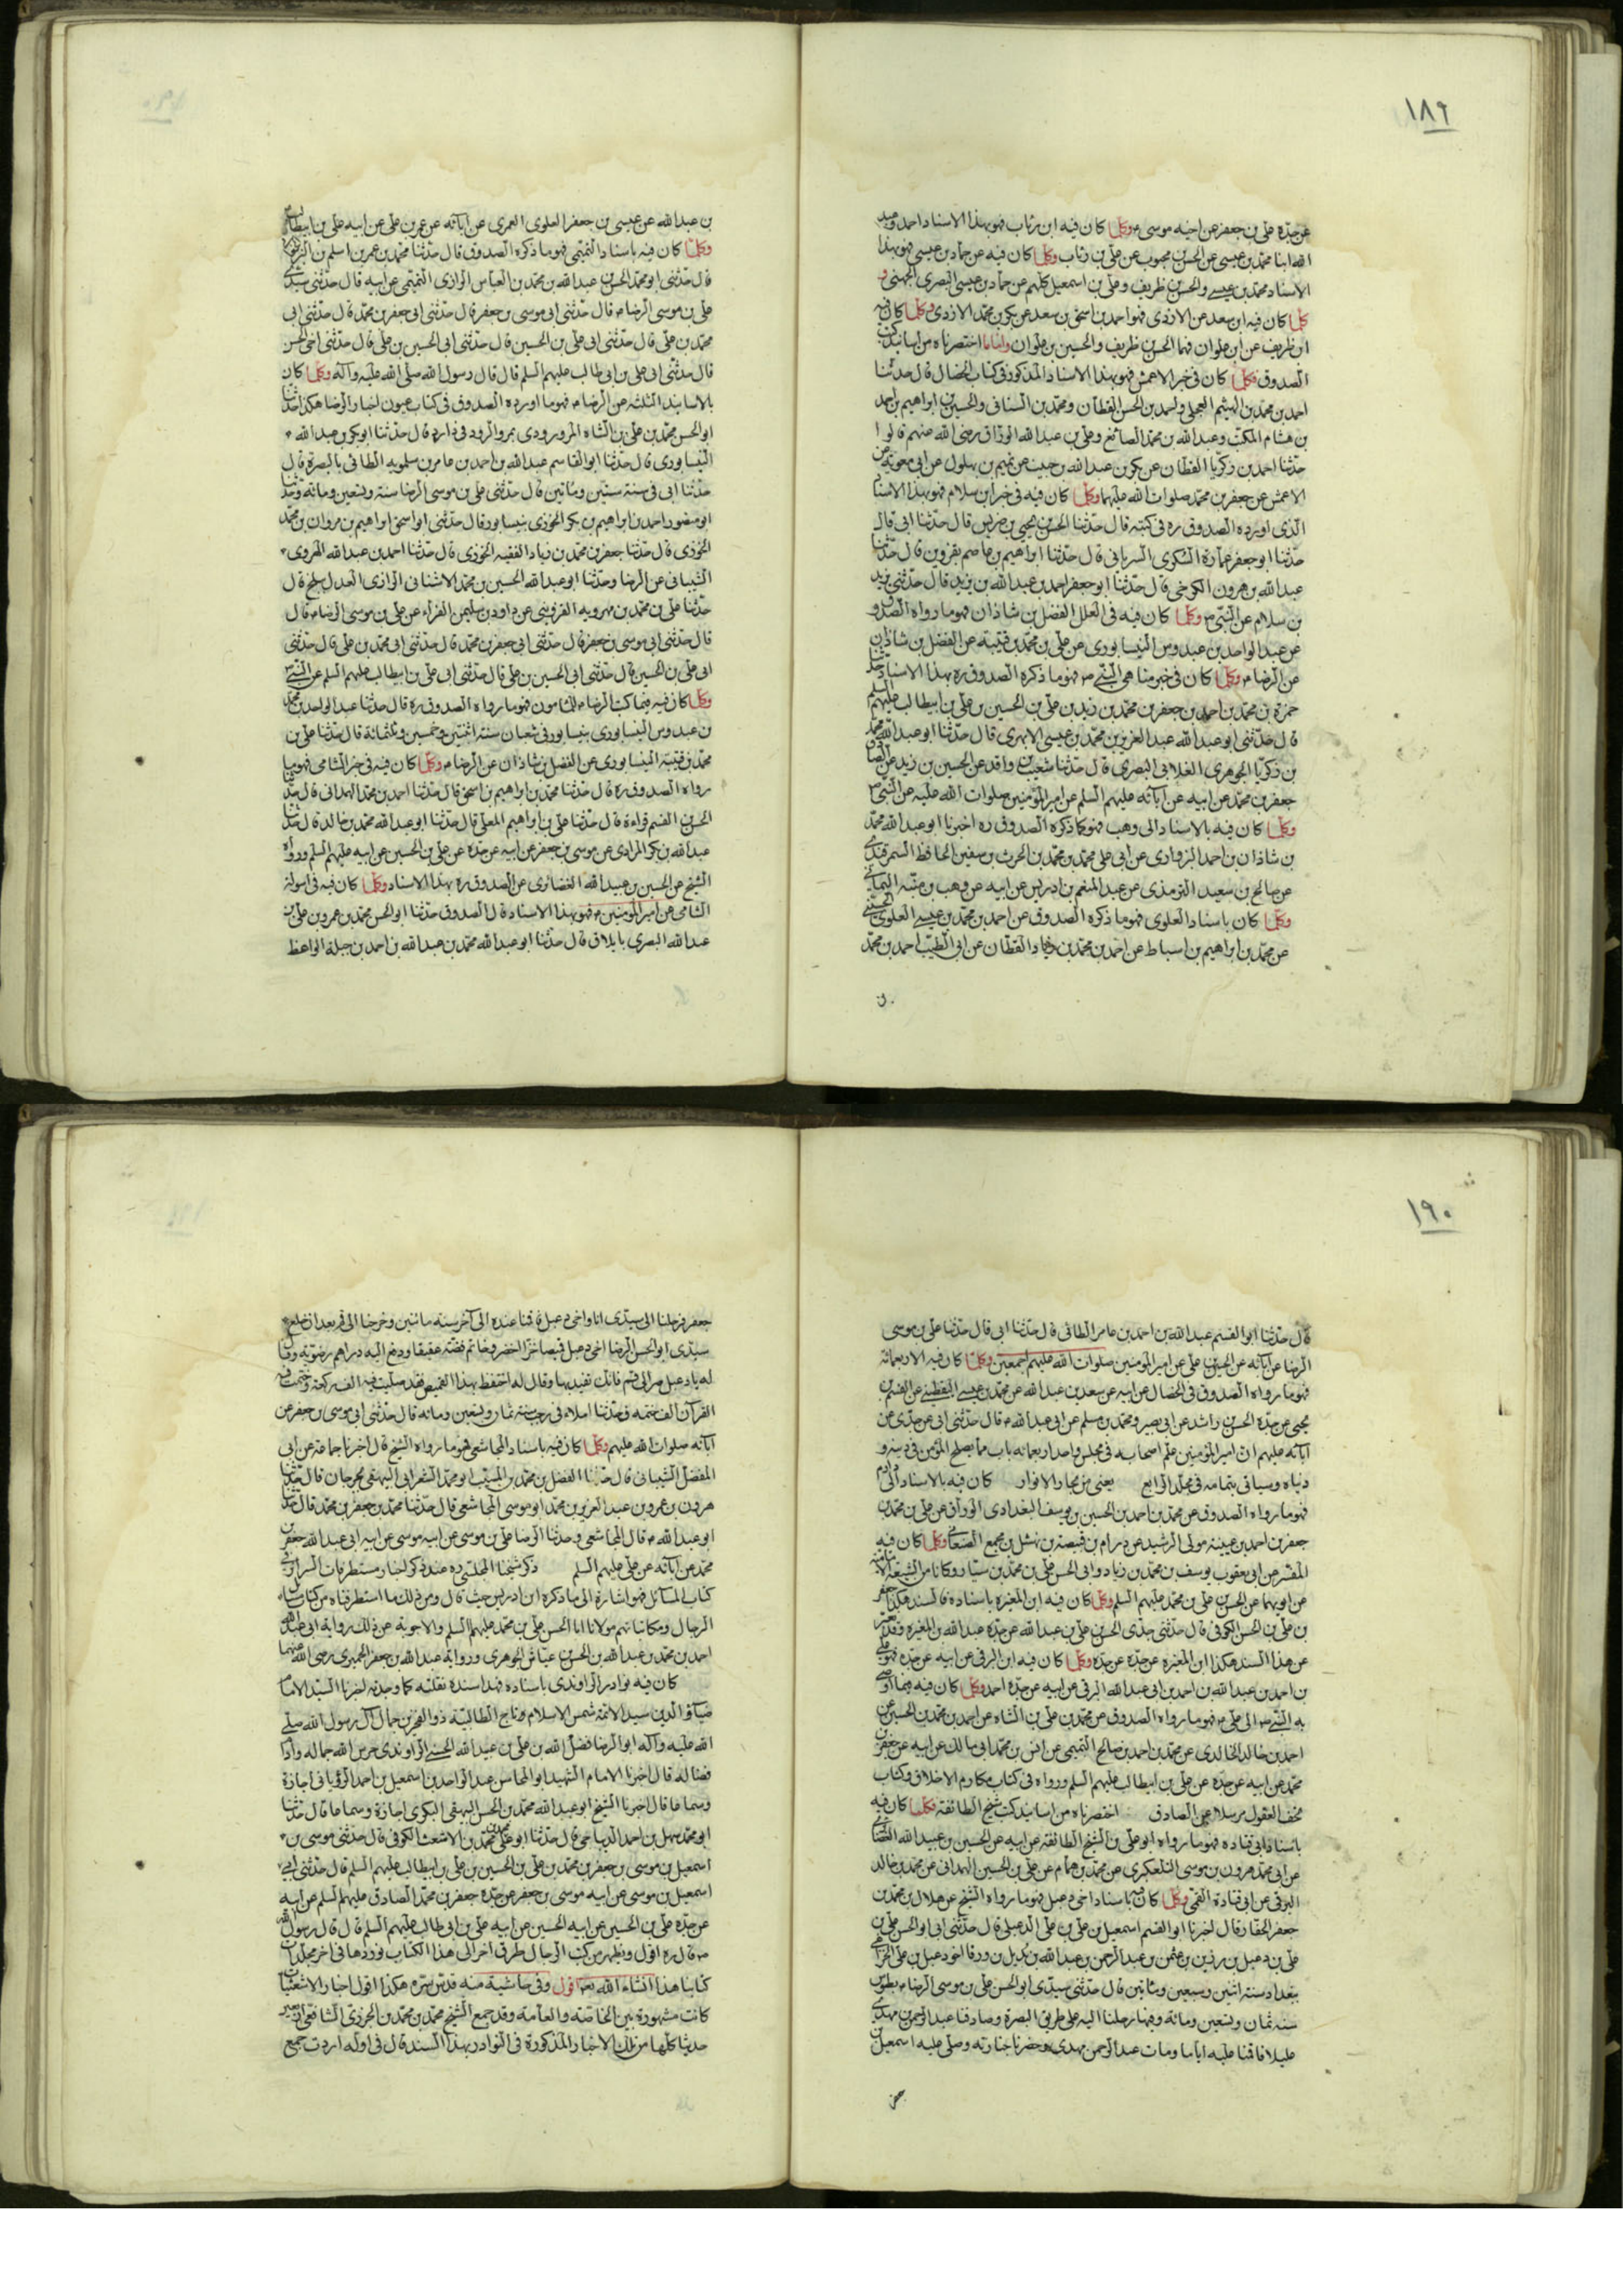 ١٨٩
عن جدّه علي بن جعفر عن اخيه موسى ع وكلما كان فيه ابن رئاب فهو بهذا الاسناد احمد وعبد
الله ابنا محمد بن عيسى عن الحسن بن محبوب عن علي بن رئاب وكلما كان فيه عن حماد بن عيسى فهو بهذا
الاسناد محمد بن عيسى والحسن بن ظريف وعلي بن اسمعيل كلهم عن حماد بن عيسى البصري الجهني و
كلما كان فيه ابن سعد عن الازدي فهو احمد بن اسحق بن سعد عن بكر بن محمد الازدي وكلما كان فيه
ابن ظريف عن ابن علوان فهما الحسن بن ظريف والحسين بن علوان واما ما اختصرناه من اسانيد كتب
الصدوق فكلما كان في خبر الاعمش فهو بهذا الاسناد المذكور في كتاب الخصال قال حدثنا
احمد بن محمد بن الهيثم العجلي واحمد بن الحسن القطان ومحمد بن السناني والحسين بن ابراهيم بن احمد
بن هشام المكتب وعبد الله بن محمد الصائغ وعلي بن عبد الله الوراق رضي الله عنهم قالوا
حدثنا احمد بن زكريا القطان عن بكر بن عبد الله بن حبيب عن تميم بن بهلول عن ابي معوية عن
الاعمش عن جعفر بن محمد صلوات الله عليهما وكلما كان فيه في خبر ابن سلام فهو بهذا الاسناد
الذي اورده الصدوق ره في كتبه قال حدثنا الحسن بن يحيى بن ضريس قال حدثنا ابي قال
حدثنا ابو جعفر عمارة السكوي السرياني قال حدثنا ابراهيم بن عاصم بقزوين قال حدثنا
عبد الله بن هرون الكرخي قال حدثنا ابو جعفر احمد بن عبد الله بن يزيد قال حدثني يزيد
بن سلام عن النبي ص وكلما كان فيه في العلل الفضل بن شاذان فهو ما رواه الصدوق
عن عبد الواحد بن عبدوس النيسابوري عن علي بن محمد بن قتيبة عن الفضل بن شاذان
عن الرضا ع وكلما كان في خبر مناهي النبي ص فهو ما ذكره الصدوق ره بهذا الاسناد حدثنا
حمزة بن محمد بن احمد بن جعفر بن محمد بن زيد بن علي بن الحسين بن علي بن ابيطالب عليهم السلم
قال حدثني ابو عبد الله عبد العزيز بن محمد بن عيسى الابهري قال حدثنا ابو عبد الله محمد
بن زكريا الجوهري الغلابي البصري قال حدثنا شعيب بن واقد عن الحسين بن زيد عن الصادق
جعفر بن محمد عن ابيه عن آبائه عليهم السلم عن امير المؤمنين صلوات الله عليه عن النبي ص
وكلما كان فيه بالاسناد الى وهب فهو كما ذكره الصدوق ره اخبرنا ابو عبد الله محمد
بن شاذان بن احمد البرواري عن ابي علي محمد بن محمد بن الحرث بن سفين الحافظ السمرقندي
عن صالح بن سعيد الترمذي عن عبد المنعم بن ادريس عن ابيه عن وهب بن منبه اليماني
وكلما كان باسناد العلوي فهو ما ذكره الصدوق عن احمد بن محمد بن عيسى العلوي الحسيني
عن محمد بن ابراهيم بن اسباط عن احمد بن محمد بن زياد القطان عن ابي الطيب احمد بن محمد
بن عبد الله عن عيسى بن جعفر العلوي العمري عن آبائه عن عمر بن علي عن ابيه علي بن ابيطالب
وكلما كان فيه باسناد التميمي فهو ما ذكره الصدوق قال حدثنا محمد بن عمر بن اسلم بن البراء
قال حدثني ابو محمد الحسن بن عبد الله بن محمد بن العباس الرازي التميمي عن ابيه قال حدثني سيدي
علي بن موسى الرضا ع قال حدثني ابي موسى بن جعفر قال حدثني ابي جعفر بن محمد قال حدثني ابي
محمد بن علي قال حدثني ابي علي بن الحسين قال حدثني ابي الحسين بن علي قال حدثني اخي الحسن
قال حدثني ابي علي بن ابي طالب عليهم السلم قال قال رسول الله صلى الله عليه وآله وكلما كان
بالاسانيد الثلثة عن الرضا ع فهو ما اورده الصدوق في كتاب عيون اخبار الرضا هكذا حدثنا
ابو الحسن محمد بن علي بن الشاه المرورودي بمرو الرود في داره قال حدثنا ابو بكر بن عبد الله
النيسابوري قال حدثنا ابو القاسم عبد الله بن احمد بن عامر بن سلمويه الطائي بالبصرة قال
حدثنا ابي في سنة ستين ومأتين قال حدثني علي بن موسى الرضا سنة وتسعين ومائة وحدثنا
ابو منصور احمد بن ابراهيم بن بكر الخوزي بنيسابور قال حدثني ابو اسحق ابراهيم بن مروان بن محمد
الخوزي قال حدثنا جعفر بن محمد بن زياد الفقيه الخوزي قال حدثنا احمد بن عبد الله الهروي
الشيباني عن الرضا وحدثنا ابو عبد الله الحسين بن محمد الاشناني الرازي العدل ببلخ قال
حدثنا علي بن محمد بن مهرويه القزويني عن داود بن سليمن الفراء عن علي بن موسى الرضا ع قال
قال حدثني ابي موسى بن جعفر قال حدثني ابي جعفر بن محمد قال حدثني ابي محمد بن علي قال حدثني
ابي علي بن الحسين قال حدثني ابي الحسين بن علي قال حدثني ابي علي بن ابيطالب عليهم السلم عن النبي ص
وكلما كان فيه فيما كتب الرضا ع للمأمون فهو ما رواه الصدوق ره قال حدثنا عبد الواحد بن محمد
بن عبدوس النيسابوري بنيسابور في شعبان سنة اثنتين وخمسين وثلثمائة قال حدثنا علي بن
محمد بن قتيبة النيسابوري عن الفضل بن شاذان عن الرضا ع وكلما كان فيه في خبر الشامي فهو ما
رواه الصدوق ره قال حدثنا محمد بن ابراهيم بن اسحق قال حدثنا احمد بن محمد الهمداني قال حدثنا
الحسن بن القسم قراءة قال حدثنا علي بن ابراهيم المعلى قال حدثنا ابو عبد الله محمد بن خالد قال حدثنا
عبد الله بن بكر المرادي عن موسى بن جعفر عن ابيه عن جده عن علي بن الحسين عن ابيه عليهم السلم ورواه
الشيخ عن الحسين بن عبيد الله الغضائري عن الصدوق ره بهذا الاسناد وكلما كان فيه في اسولة
الشامي عن امير المؤمنين ع فهو بهذا الاسناد قال الصدوق حدثنا ابو الحسن محمد بن عمرو بن علي بن
عبد الله البصري بايلاق قال حدثنا ابو عبد الله محمد بن عبد الله بن احمد بن جبلة الواعظ
١٩٠
قال حدثنا ابو القسم عبد الله بن احمد بن عامر الطائي قال حدثنا ابي قال حدثنا علي بن موسى
الرضا عن آبائه عن الحسين بن علي عن امير المؤمنين صلوات الله عليهم اجمعين وكلما كان فيه الاربعمائة
فهو ما رواه الصدوق في الخصال عن ابيه عن سعد بن عبد الله عن محمد بن عيسى اليقطيني عن القسم بن
يحيى عن جده الحسن بن راشد عن ابي بصير ومحمد بن مسلم عن ابي عبد الله ع قال حدثني ابي عن جدي عن
آبائه عليهم ان امير المؤمنين علم اصحابه في مجلس واحد اربعمائة باب مما يصلح المؤمن في دينه و
دنياه وسياتي بتمامه في مجلد الرابع يعني من بحار الانوار كان فيه بالاسناد الى دارم
فهو ما رواه الصدوق عن محمد بن احمد بن الحسين بن يوسف البغدادي الوراق عن علي بن محمد بن
جعفر بن احمد بن عيينة مولى الرشيد عن دارم بن قبيصة بن نهشل بن مجمع الصنعاني وكلما كان فيه
المفسر عن ابي يعقوب يوسف بن محمد بن زياد وابي الحسن علي بن محمد بن سيار وكانا من الشيعة الامامية
عن ابويهما عن الحسن بن علي بن محمد عليهم السلم وكلما كان فيه ابن المغيرة باسناده فالسند هكذا جعفر
بن علي بن الحسن الكوفي قال حدثني جدي الحسن بن علي بن عبد الله عن جده عبد الله بن المغيرة وقد يعبر
عن هذا السند هكذا ابن المغيرة عن جده عن جده وكلما كان فيه ابن البرقي عن ابيه عن جده فهو علي
بن احمد بن عبد الله بن احمد بن ابي عبد الله البرقي عن ابيه عن جده احمد وكلما كان فيه فيما اوصى
به النبي ص الى علي ع فهو ما رواه الصدوق عن محمد بن علي بن الشاه عن احمد بن محمد بن الحسين عن
احمد بن خالد الخالدي عن محمد بن احمد بن صالح التميمي عن انس بن محمد ابي مالك عن ابيه عن جعفر بن
محمد عن ابيه عن جده عن علي بن ابيطالب عليهم السلم ورواه في كتاب مكارم الاخلاق وكتاب
تحف العقول مرسلا عن الصادق اختصرناه من اسانيد كتب شيخ الطائفة فكلما كان فيه
باسناد ابي قتادة فهو ما رواه ابو علي بن الشيخ الطائفة عن ابيه عن الحسين بن عبيد الله الغضائري
عن ابي محمد هرون بن موسى التلعكبري عن محمد بن همام عن علي بن الحسين الهمداني عن محمد بن خالد
البرقي عن ابي قتادة القمي وكلما كان فيه باسناد اخي دعبل فهو ما رواه الشيخ عن هلال بن محمد بن
جعفر الحفار قال اخبرنا ابو القسم اسمعيل بن علي بن علي الدعبلي قال حدثني ابي ابو الحسن علي بن
علي بن دعبل بن رزين بن عثمن بن عبد الرحمن بن عبد الله بن بديل بن ورقا اخو دعبل بن علي الخزاعي
ببغداد سنة اثنين وسبعين ومأتين قال حدثني سيدي ابو الحسن علي بن موسى الرضا ع بطوس
سنه ثمان وتسعين ومائة وفيها رحلنا اليه على طريق البصرة وصادفنا عبد الرحمن بن مهدي
عليلا فاقمنا عليه اياما ومات عبد الرحمن بن مهدي وحضرنا جنازته وصلى عليه اسمعيل بن
جعفر فرحلنا الى سيدي انا واخي دعبل فاقمنا عنده الى آخر سنه مائتين وخرجنا الى قم بعد ان خلع
سيدي ابو الحسن الرضا اخي دعبل قميصا خزا اخضر وخاتم فضته عقيقا ودفع اليه دراهم رضوية وقال
له يا دعبل صر الى قم فانك تفيد بها وقال له احتفظ بهذا القميص فقد صليت فيه الف ركعة وختمت فيه
القرآن الف ختمه وحدثنا املاء في رجب سنة ثمان وتسعين ومائه قال حدثني ابي موسى بن جعفر عن
آبائه صلوات الله عليهم وكلما كان فيه باسناد المجاشعي فهو ما رواه الشيخ قال اخبرنا جماعة عن ابي
المفضل الشيباني قال حدثنا الفضل بن محمد بن المسيب ابو محمد الشعراني البيهقي بجرجان قال حدثنا
هرون بن عمرو بن عبد العزيز بن محمد ابو موسى المجاشعي قال حدثنا محمد بن جعفر بن محمد قال حدثنا
ابو عبد الله ع قال المجاشعي وحدثنا الرضا علي بن موسى عن ابيه موسى عن ابيه ابي عبد الله جعفر بن
محمد عن آبائه عن علي عليهم السلم ذكر شيخنا المجلسي ره عند ذكر اخبار مستطرفات السرائر في
كتاب المسائل فهو اشارة الى ما ذكره ابن ادريس حيث قال ومن ذلك ما استطرفناه من كتاب مسائل
الرجال ومكاتباتهم مولانا ابا الحسن علي بن محمد عليهم السلم والاجوبة عن ذلك رواية ابي عبد الله
احمد بن محمد بن عبد الله بن الحسن بن عياش الجوهري ورواية عبد الله بن جعفر الحميري رضي الله عنهما
كان فيه نوادر الراوندي باسناده فهذا سنده نقلته كما وجدته اخبرنا السيد الامام
ضياء الدين سيد الائمة شمس الاسلام وتاج الطالبية ذو الفخرين جمال آل رسول الله صلى
الله عليه وآله ابو الرضا فضل الله بن علي بن عبد الله الحسني الراوندي حرس الله جماله وادام
فضله قال اخبرنا الامام الشهيد ابو المحاسن عبد الواحد بن اسمعيل بن احمد الروياني اجازة
وسماعا قال اخبرنا الشيخ ابو عبد الله محمد بن الحسن البيهقي البكري اجازة وسماعا قال حدثنا
ابو محمد سهل بن احمد الديباجي قال حدثنا ابو علي محمد بن محمد بن الاشعث الكوفي قال حدثني موسى بن
اسمعيل بن موسى بن جعفر بن محمد بن علي بن الحسين بن علي بن ابيطالب عليهم السلم قال حدثني ابي
اسمعيل بن موسى عن ابيه موسى بن جعفر عن جده جعفر بن محمد الصادق عليهم السلم عن ابيه
عن جده علي بن الحسين عن ابيه الحسين عن ابيه علي بن ابي طالب عليهم السلم قال قال رسول الله
ص قال ره اقول ويظهر من كتب الرجال طرق اخر الى هذا الكتاب نوردها في اخر مجلدات
كتابنا هذا انشاء الله تع اقول وفي حاشية منه قدس سره هكذا اقول اخبار الاشعثيات
كانت مشهورة بين الخاصة والعامة وقد جمع الشيخ محمد بن محمد بن الجزري الشافعي اربعين
حديثا كلها من تلك الاخبار المذكورة في النوادر بهذا السند قال في اوله اردت جمع